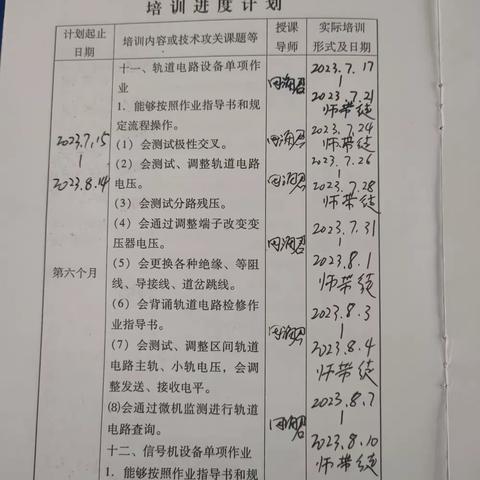 培训进度计划
计划起止
日期
培训内容或技术攻关课题等
授课
导师
实际培训
形式及日期
2023.7.15
|
2023.8.14
第六个月
十一、轨道电路设备单项作
业
1. 能够按照作业指导书和规
定流程操作。
(1) 会测试极性交叉。
(2) 会测试、调整轨道电路
电压。
(3) 会测试分路残压。
(4) 会通过调整端子改变变
压器电压。
(5) 会更换各种绝缘、等阻
线、导接线、道岔跳线。
(6) 会背诵轨道电路检修作
业指导书。
(7) 会测试、调整区间轨道
电路主轨、小轨电压，会调
整发送、接收电平。
(8)会通过微机监测进行轨道
电路查询。
十二、信号机设备单项作业
1. 能够按照作业指导书和规
2023.7.17
|
2023.7.21
师带徒
2023.7.24
师带徒
2023.7.26
|
2023.7.28
师带徒
2023.7.31
|
2023.8.1
师带徒
2023.8.3
|
2023.8.4
师带徒
2023.8.7
|
2023.8.10
师带徒